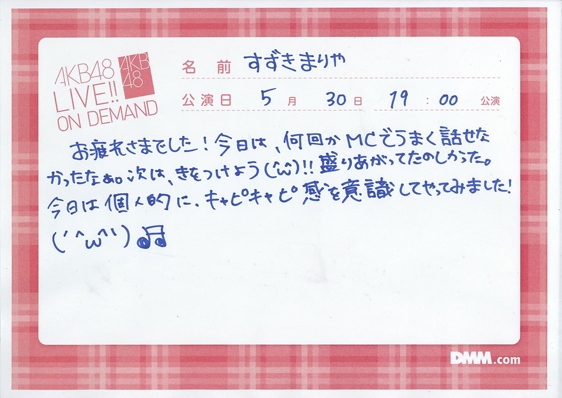 AKB48
LIVE!!
ON DEMAND
AKB
48
名前 すずきまりや
公演日 5月30日 19:00 公演
お疲れさまでした!今日は、何回かMCでうまく話せな
かったなぁ。次は、きをつけよう(´ω`)!!盛りあがってたのしかった。
今日は個人的に、キャピキャピ感を意識してやってみました!
(´^ω^`)♫
DMM.com